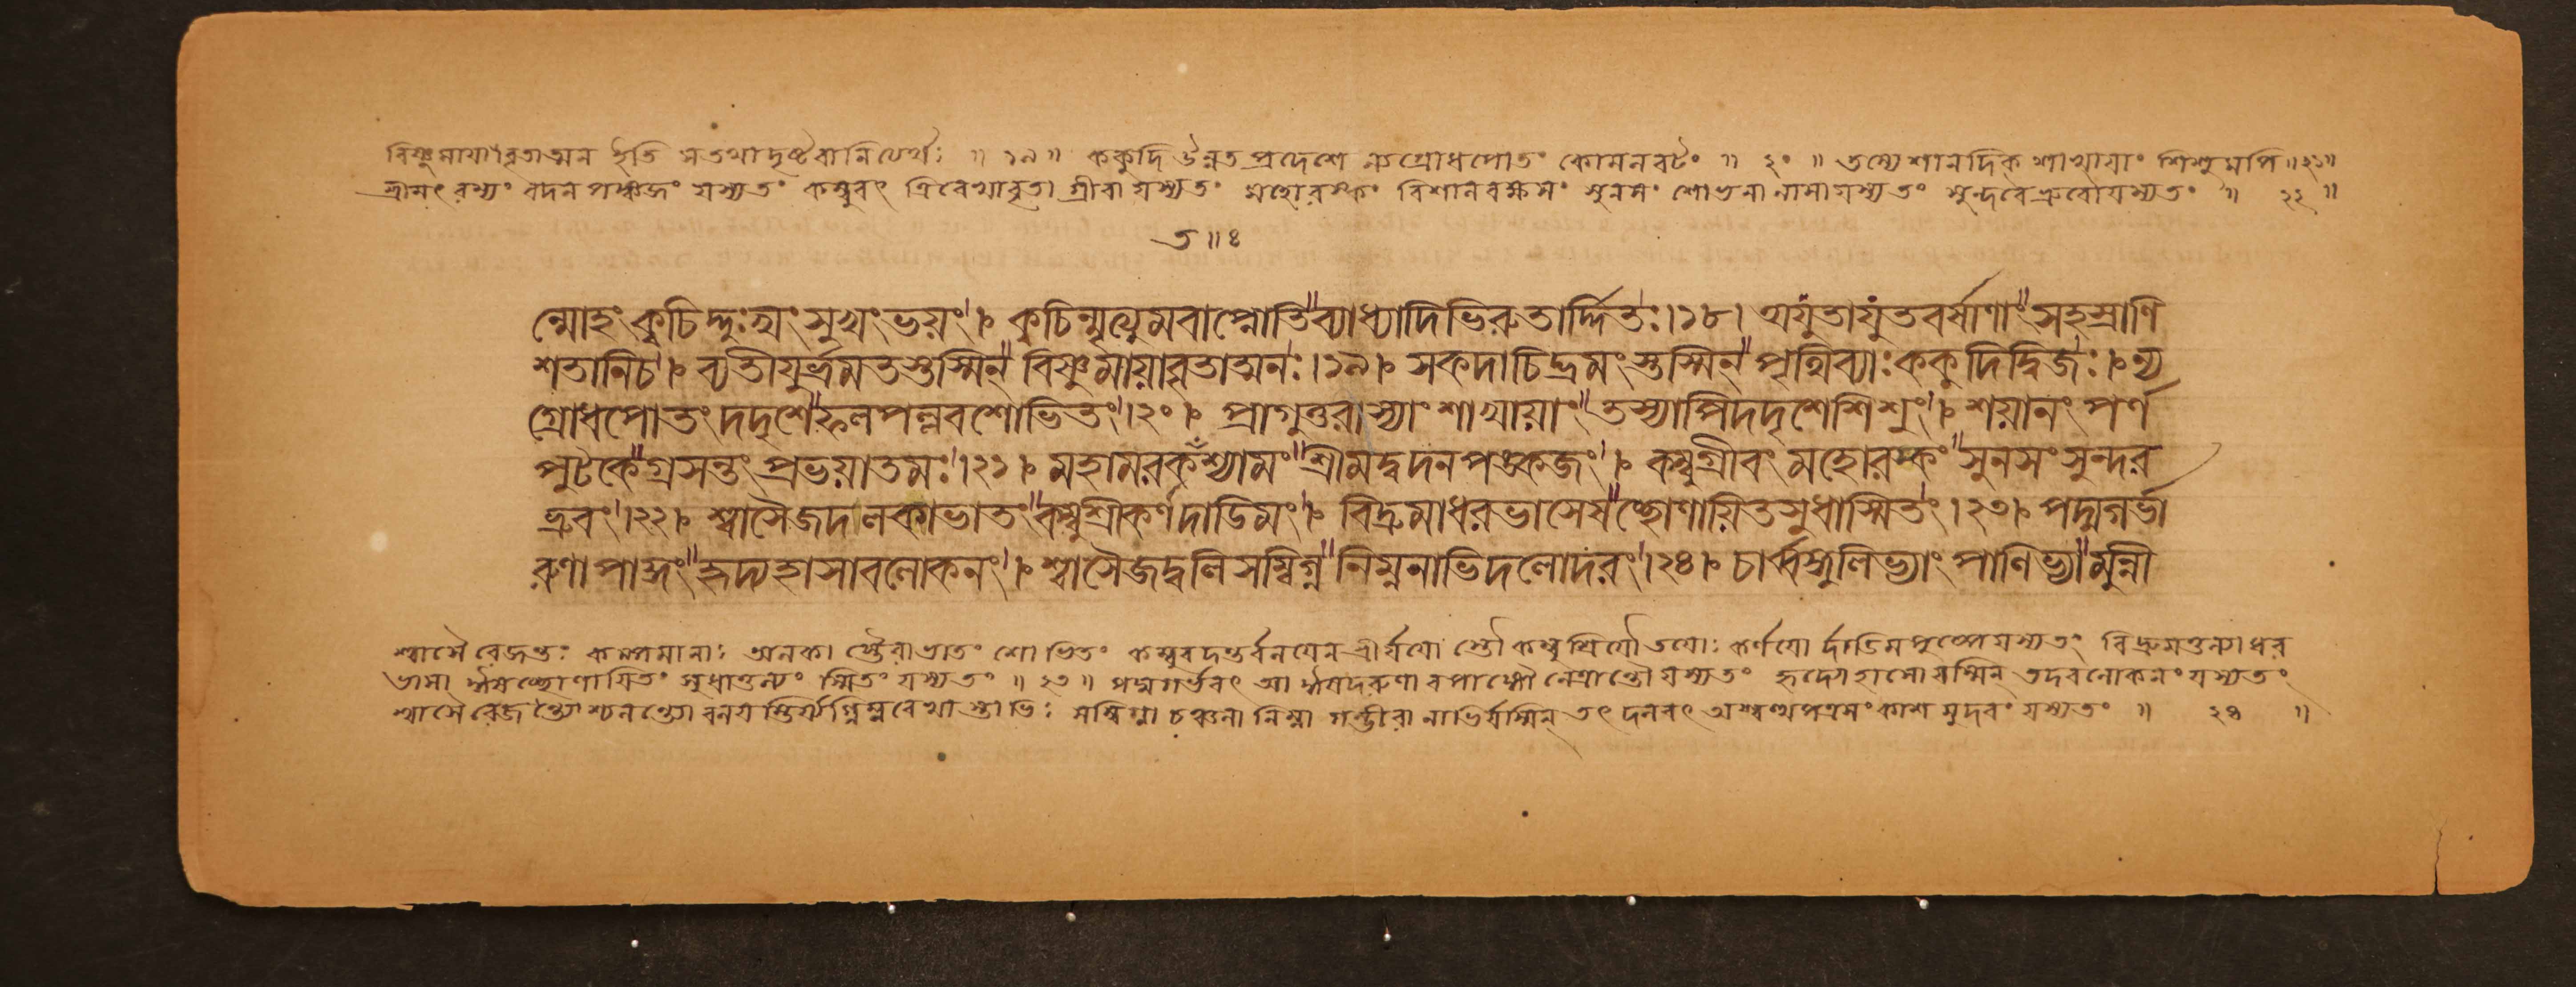 বিষ্ণুমায়াবৃতাত্মন ইতি সতথাদৃষ্টবানিত্যর্থঃ ॥ ১৯ ॥ ককুদি উন্নতপ্রদেশে ন্যগ্রোধপোতং কোমলবটং ॥ ২০ ॥ তস্যেশানদিক্ শাখায়াং শিশুমপি ॥ ২১ ॥
শ্রীমৎ রম্যং বদনপঙ্কজং যস্যতং কম্বুবৎ ত্রিরেখাবৃতা গ্রীবা যস্যতং মহোরস্কং বিশালবক্ষসং সুনসং শোভনা নাসা যস্যতং সুন্দরেভ্রুবৌযস্যতং ॥ ২২ ॥
ত ॥ ৪
ন্মোহং ক্বচিদ্দুঃখং সুখং ভয়ং । ক্বচিন্মৃত্যুমবাপ্নোতি ব্যাধ্যাদিভিরুতার্দ্দিতঃ । ১৮ । অযুতাযুতবর্ষাণাং সহস্রাণি
শতানিচ । ব্যতীযুর্ভ্রমতস্তস্মিন্ বিষ্ণুমায়াবৃতাত্মনঃ । ১৯ । সকদাচিদ্ভ্রমংস্তস্মিন্ পৃথিব্যাঃ ককুদিদ্বিজঃ । ন্য
গ্রোধপোতং দদৃশে ফলপল্লবশোভিতং । ২০ । প্রাগুত্তরাস্যাং শাখায়াং তস্যাপিদদৃশেশিশুং । শয়ানং পর্ণ
পুটকে গ্রসন্তং প্রভয়াতমঃ । ২১ । মহামরকতশ্যামং শ্রীমদ্বদনপঙ্কজং । কম্বুগ্রীবং মহোরস্কং সুনসং সুন্দর
ভ্রুবং । ২২ । শ্বাসৈজদলকাভাতং কম্বুশ্রীকর্ণদাড়িমং । বিদ্রুমাধরভাসেষচ্ছোণায়িতসুধাস্মিতং । ২৩ । পদ্মগর্ভা
রুণাপাঙ্গং হৃদ্যহাসাবলোকনং । শ্বাসৈজদ্বলিসম্বিগ্ন নিম্ননাভিদলোদরং । ২৪ । চার্ব্বঙ্গুলিভ্যাং পাণিভ্যা মুন্নী
শ্বাসৈ রেজন্তঃ কম্পমানাঃ অলকা স্তৈরাভাতং শোভিতং কম্বুবদন্তর্বলয়েন শ্রীর্যয়ো স্তৌ কম্বুশ্রিয়ৌ তয়োঃ কর্ণয়ো র্দাড়িমপুষ্পেযস্যতং বিদ্রুমতুল্যাধর
ভাসা ঈষচ্ছোণায়িতং সুধাতুল্যং স্মিতং যস্যতং ॥ ২৩ ॥ পদ্মগর্ভবৎ আ ঈষদরুণাবপাঙ্গৌ নেত্রান্তৌ যস্যতং হৃদ্যোহাসো যস্মিন্ তদবলোকনং যস্যতং
শ্বাসৈ রেজন্ত্যোশ্চলন্ত্যো বলয়স্তির্য্যগ্নিম্নরেখাস্তাভিঃ সম্বিগ্না চঞ্চলা নিম্না গম্ভীরা নাভির্যস্মিন্ তৎ দলবৎ অশ্বত্থপত্রসংকাশ মুদরং যস্যতং ॥ ২৪ ॥